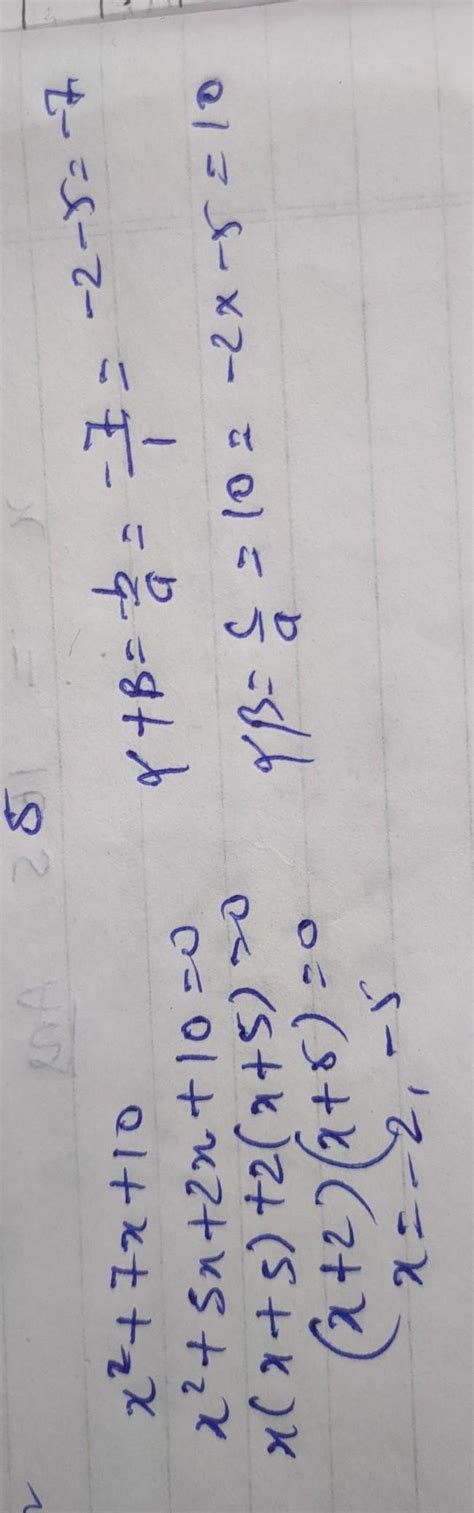 5
x² + 7x + 10
x² + 5x + 2x + 10 = 0
x(x + 5) + 2(x + 5) = 0
(x + 2)(x + 5) = 0
x = -2, -5
γ + β = -b/a = -7/1 = -2 - 5 = -7
γβ = c/a = 10 = -2 x -5 = 10